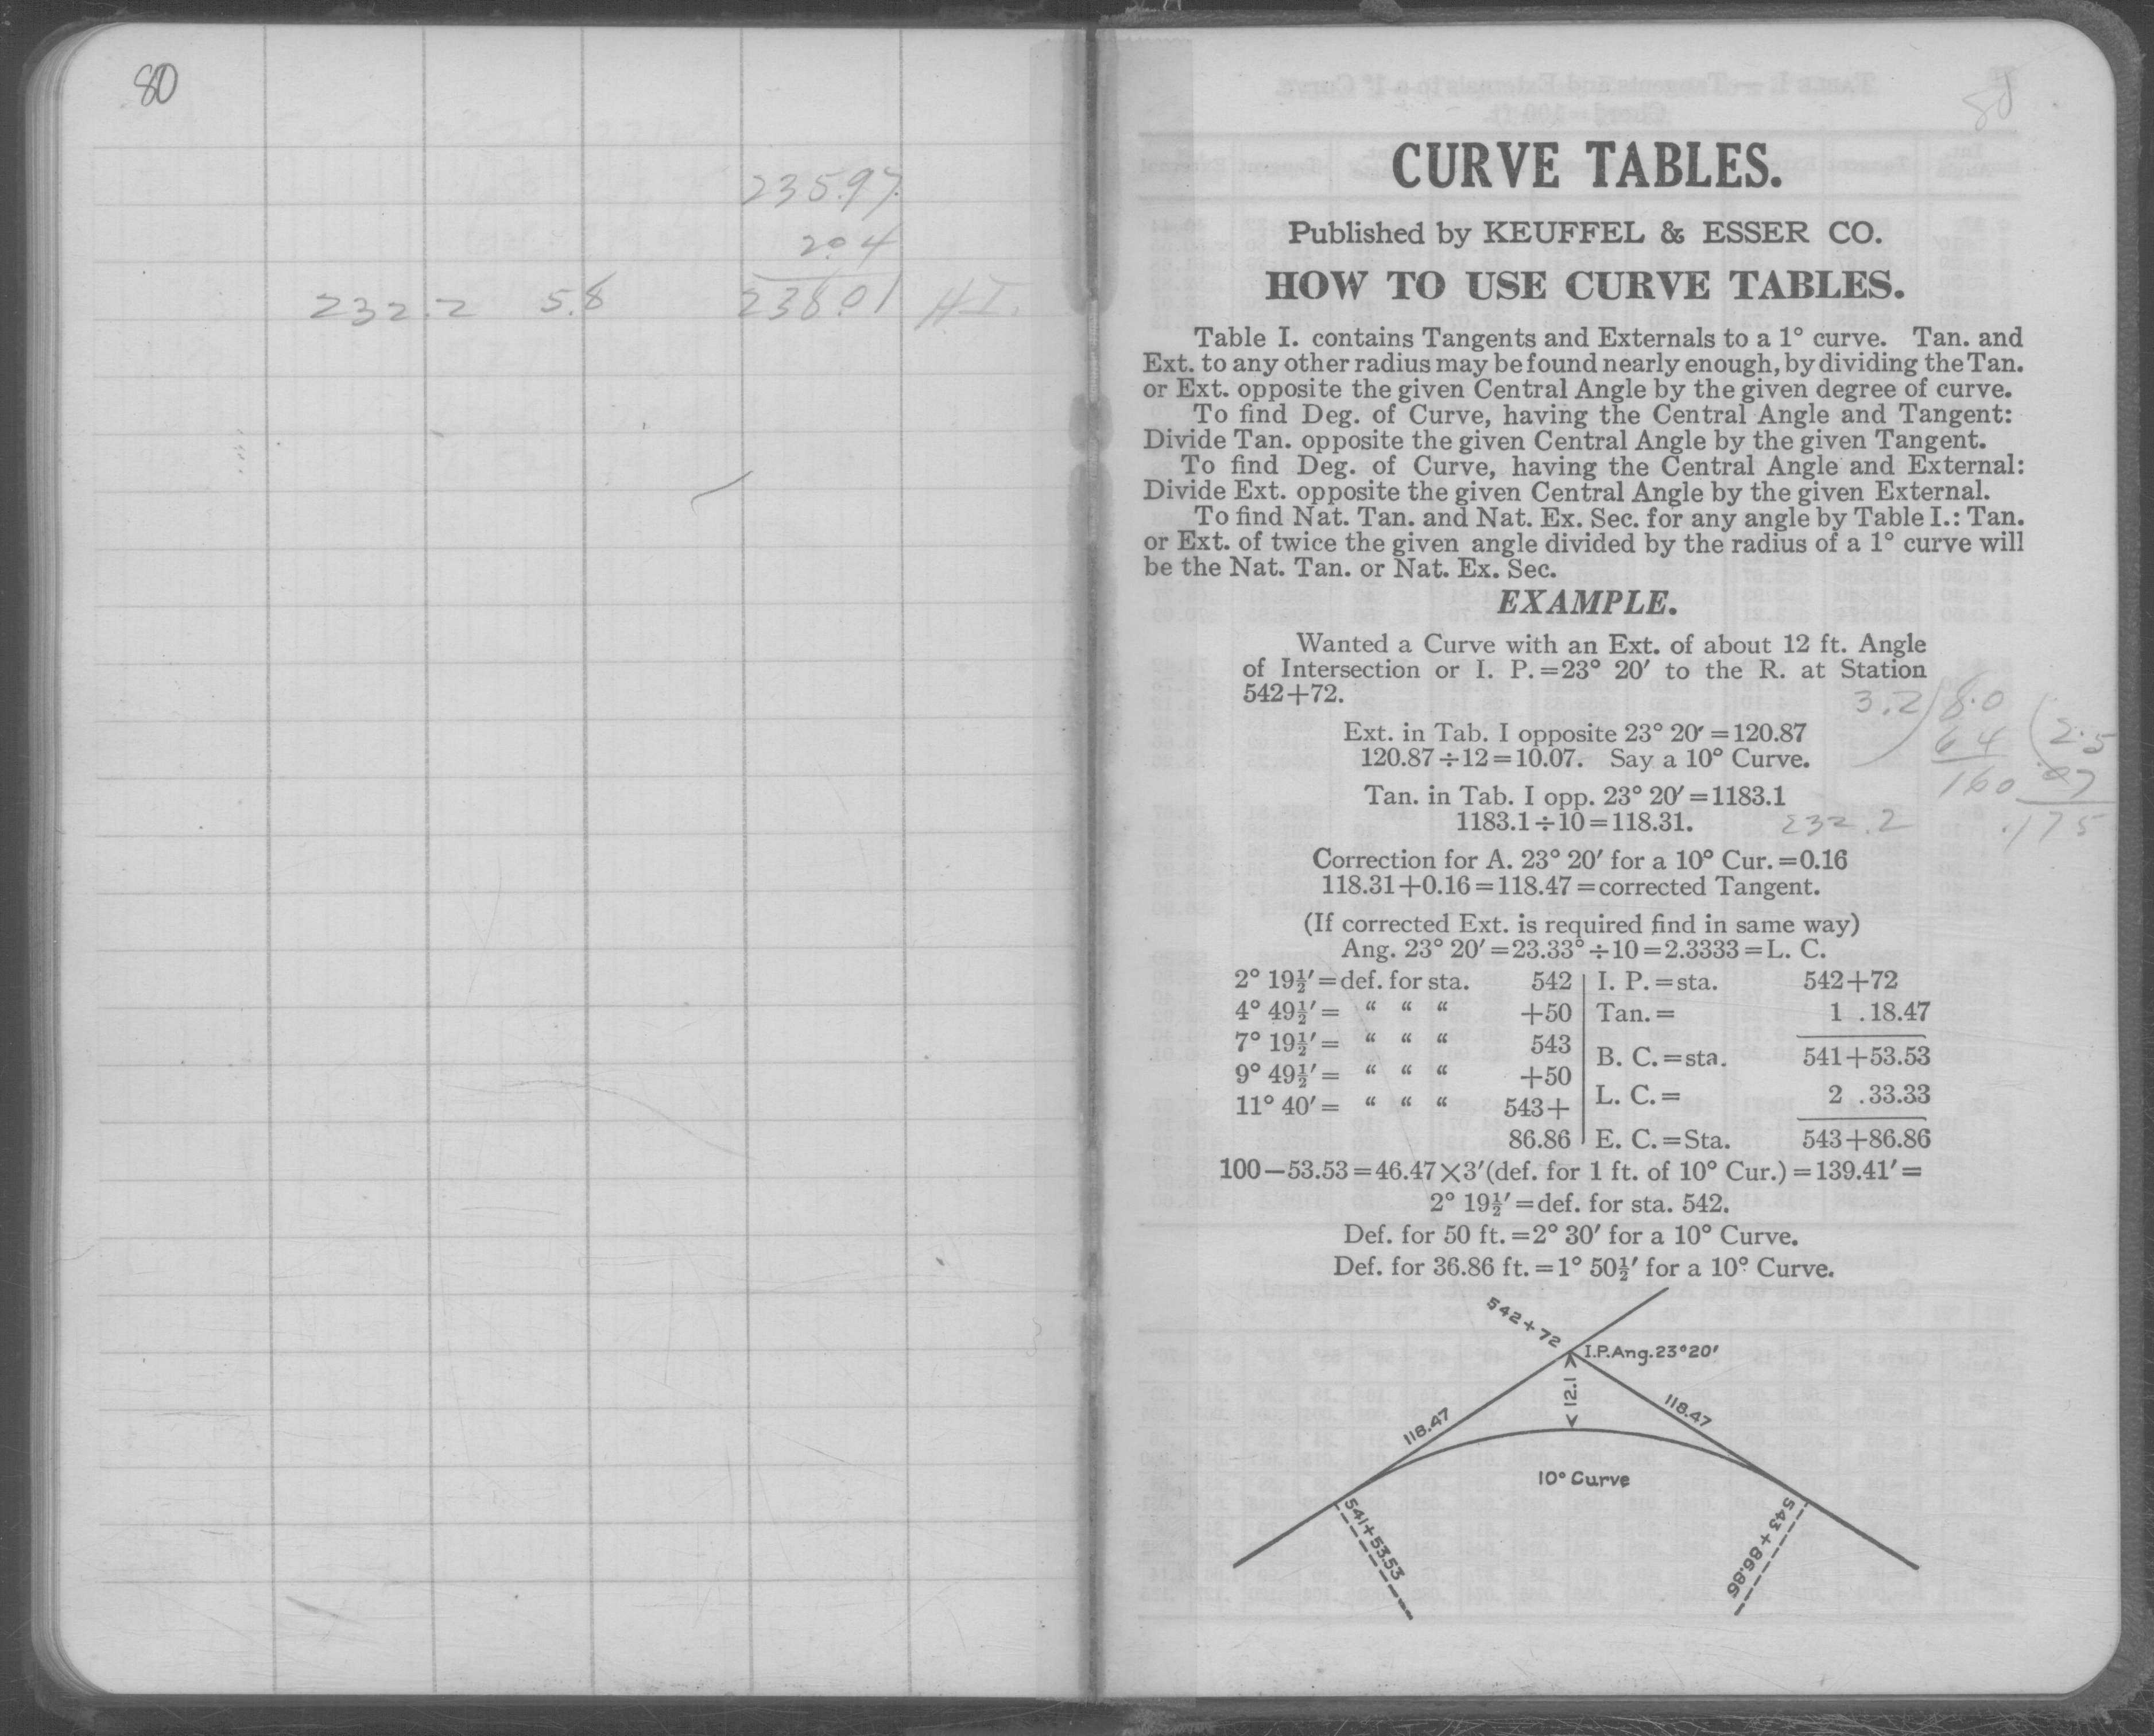 80
235.97
2.04
232.2 5.8 238.01 H.I.
80
CURVE TABLES.
Published by KEUFFEL & ESSER CO.
HOW TO USE CURVE TABLES.
Table I. contains Tangents and Externals to a 1° curve. Tan. and
Ext. to any other radius may be found nearly enough, by dividing the Tan.
or Ext. opposite the given Central Angle by the given degree of curve.
To find Deg. of Curve, having the Central Angle and Tangent:
Divide Tan. opposite the given Central Angle by the given Tangent.
To find Deg. of Curve, having the Central Angle and External:
Divide Ext. opposite the given Central Angle by the given External.
To find Nat. Tan. and Nat. Ex. Sec. for any angle by Table I.: Tan.
or Ext. of twice the given angle divided by the radius of a 1° curve will
be the Nat. Tan. or Nat. Ex. Sec.
EXAMPLE.
Wanted a Curve with an Ext. of about 12 ft. Angle
of Intersection or I. P.=23° 20′ to the R. at Station
542+72.
3.2)8.0(2.5
64
160 .07
.175
Ext. in Tab. I opposite 23° 20′=120.87
120.87÷12=10.07. Say a 10° Curve.
Tan. in Tab. I opp. 23° 20′=1183.1
1183.1÷10=118.31.
232.2
Correction for A. 23° 20′ for a 10° Cur.=0.16
118.31+0.16=118.47=corrected Tangent.
(If corrected Ext. is required find in same way)
Ang. 23° 20′=23.33°÷10=2.3333=L. C.
2° 19½′=def. for sta. 542 I. P.=sta. 542+72
4° 49½′= “ “ “ +50 Tan.= 1 .18.47
7° 19½′= “ “ “ 543 B. C.=sta. 541+53.53
9° 49½′= “ “ “ +50 L. C.= 2 .33.33
11° 40′= “ “ “ 543+
86.86 E. C.=Sta. 543+86.86
100−53.53=46.47×3′(def. for 1 ft. of 10° Cur.)=139.41′=
2° 19½′=def. for sta. 542.
Def. for 50 ft.=2° 30′ for a 10° Curve.
Def. for 36.86 ft.=1° 50½′ for a 10° Curve.
542+72
I.P.Ang.23°20′
12.1
118.47
118.47
10° Curve
541+53.53
543+86.86